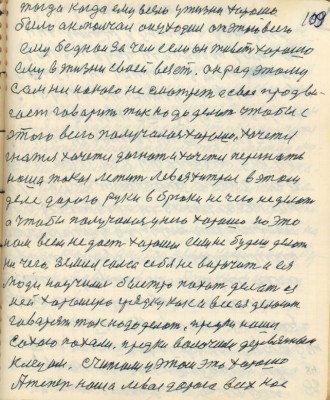 109
тогда когда ему было у жизни хорошо
было он молчал он уходил от этой всего
ему бедной за чем сели он живёт хорошо
ему в жизни своей везёт. он рад этому
сам ни на кого не смотрит а своё продви-
гает говорит так надо делать чтобы с
этого всего получалось хорошо, хочется
гнатся хочется догнать и хочется перегнать
наша такая летит левая хитрая в этом
деле дорога руки в брюки не чего не делать
а чтобы получалось у него хорошо но это
нам всем не даст хорошо если не будем делать
ни чего. Земля сама себя не ворочит а её
люди научились быстро пахать делать с
ней хорошую грядку как и все её делают
говорят так надо делать, предки наши
сохою пахали, предки волочили деревянным
клецам, считали у этом это хорошо
А теперь наша левая дорога всех нас